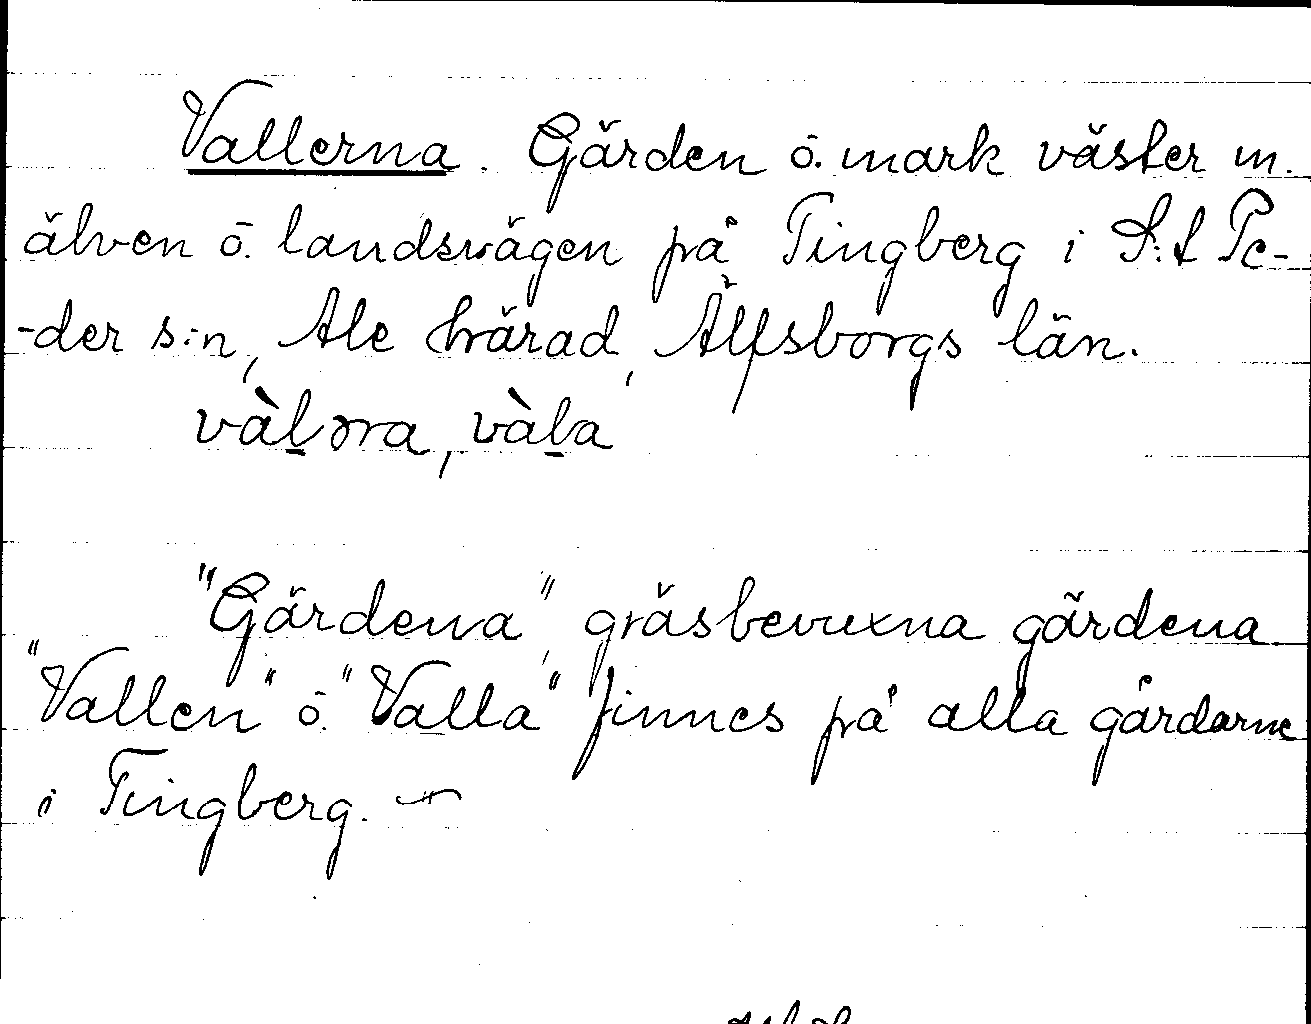 Vallerna. Gärden ō. mark väster m.
älven ō. landsvägen på Tingberg i S:t Pe-
-der s:n, Ale härad, Älfsborgs län.
vàlɔra, vàla
"Gärdena", gräsbevuxna gärdena
"Vallen" ō. "Valla" finnes på alla gårdarne
i Tingberg. —